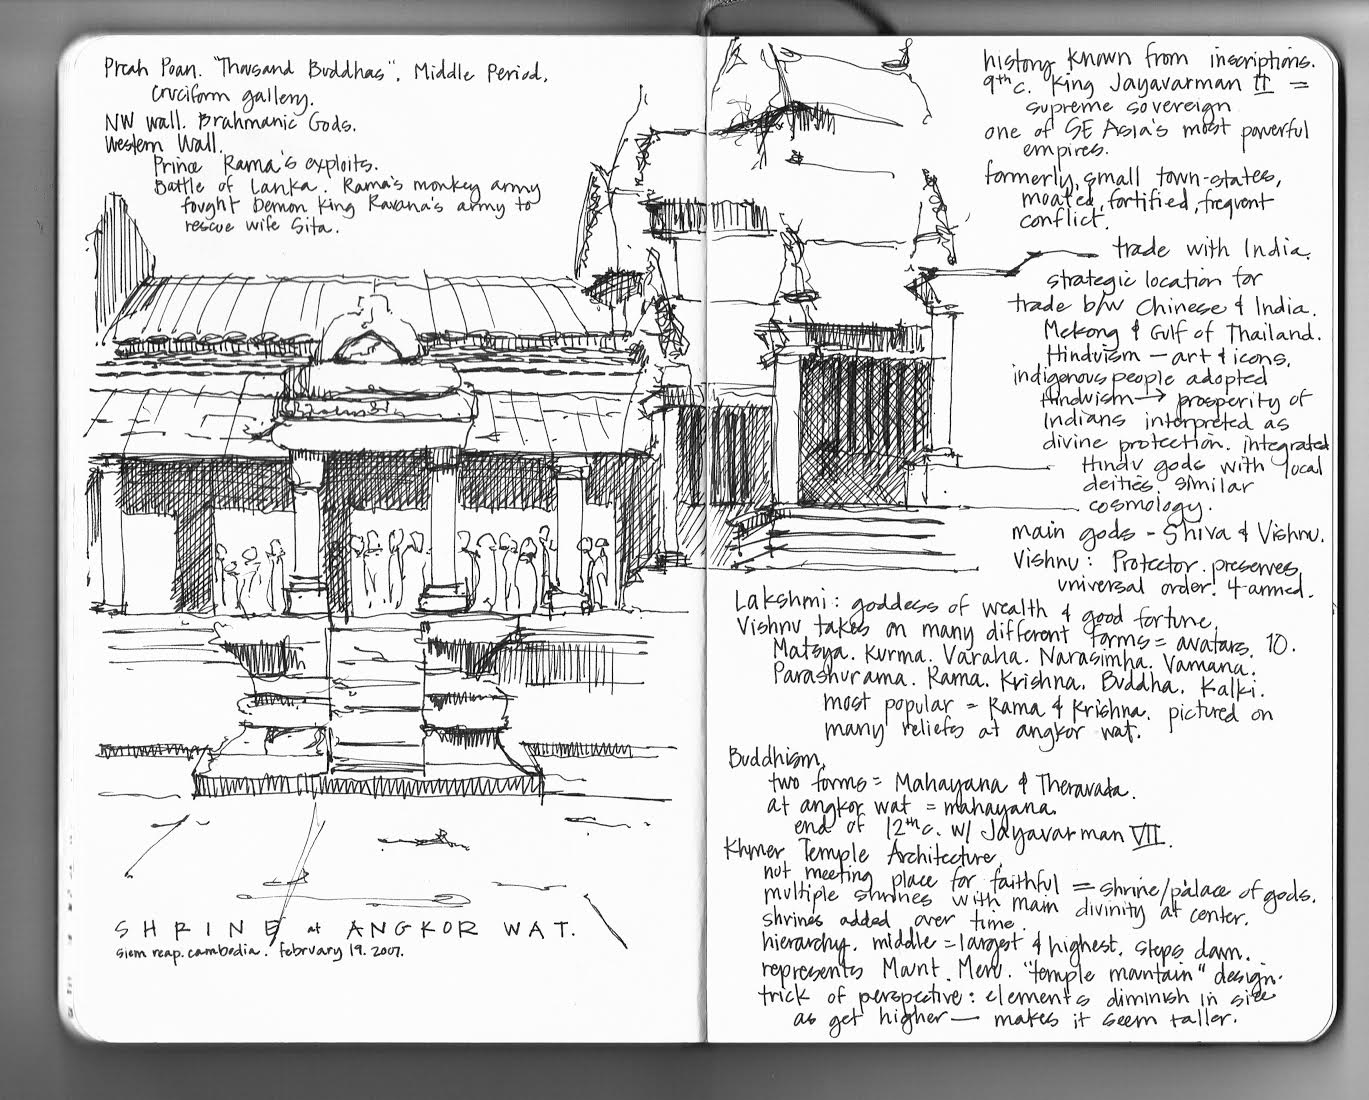 Preah Poan. "Thousand Buddhas". Middle Period.
cruciform gallery.
NW wall. Brahmanic Gods.
Western Wall.
Prince Rama's exploits.
Battle of Lanka. Rama's monkey army
fought Demon King Ravana's army to
rescue wife Sita.
SHRINE at ANGKOR WAT.
siem reap. cambodia. february 19. 2007.
history known from inscriptions.
9th c. King Jayavarman II =
supreme sovereign
one of SE Asia's most powerful
empires.
formerly, small town-states,
moated, fortified, frequent
conflict.
trade with India.
strategic location for
trade b/w Chinese & India.
Mekong & Gulf of Thailand.
Hinduism — art & icons.
indigenous people adopted
Hinduism → prosperity of
Indians interpreted as
divine protection. integrated
Hindu gods with local
deities. similar
cosmology.
main gods - Shiva & Vishnu.
Vishnu: Protector. preserves
universal order. 4-armed.
Lakshmi: goddess of wealth & good fortune.
Vishnu takes on many different forms = avatars. 10.
Matsya. Kurma. Varaha. Narasimha. Vamana.
Parashurama. Rama. Krishna. Buddha. Kalki.
most popular = Rama & Krishna. pictured on
many reliefs at angkor wat.
Buddhism.
two forms = Mahayana & Theravada.
at angkor wat = mahayana.
end of 12th c. w/ Jayavarman VII.
Khmer Temple Architecture.
not meeting place for faithful = shrine/palace of gods.
multiple shrines with main divinity at center.
shrines added over time.
hierarchy. middle = largest & highest. steps down.
represents Mount Meru. "temple mountain" design.
trick of perspective: elements diminish in size
as get higher — makes it seem taller.